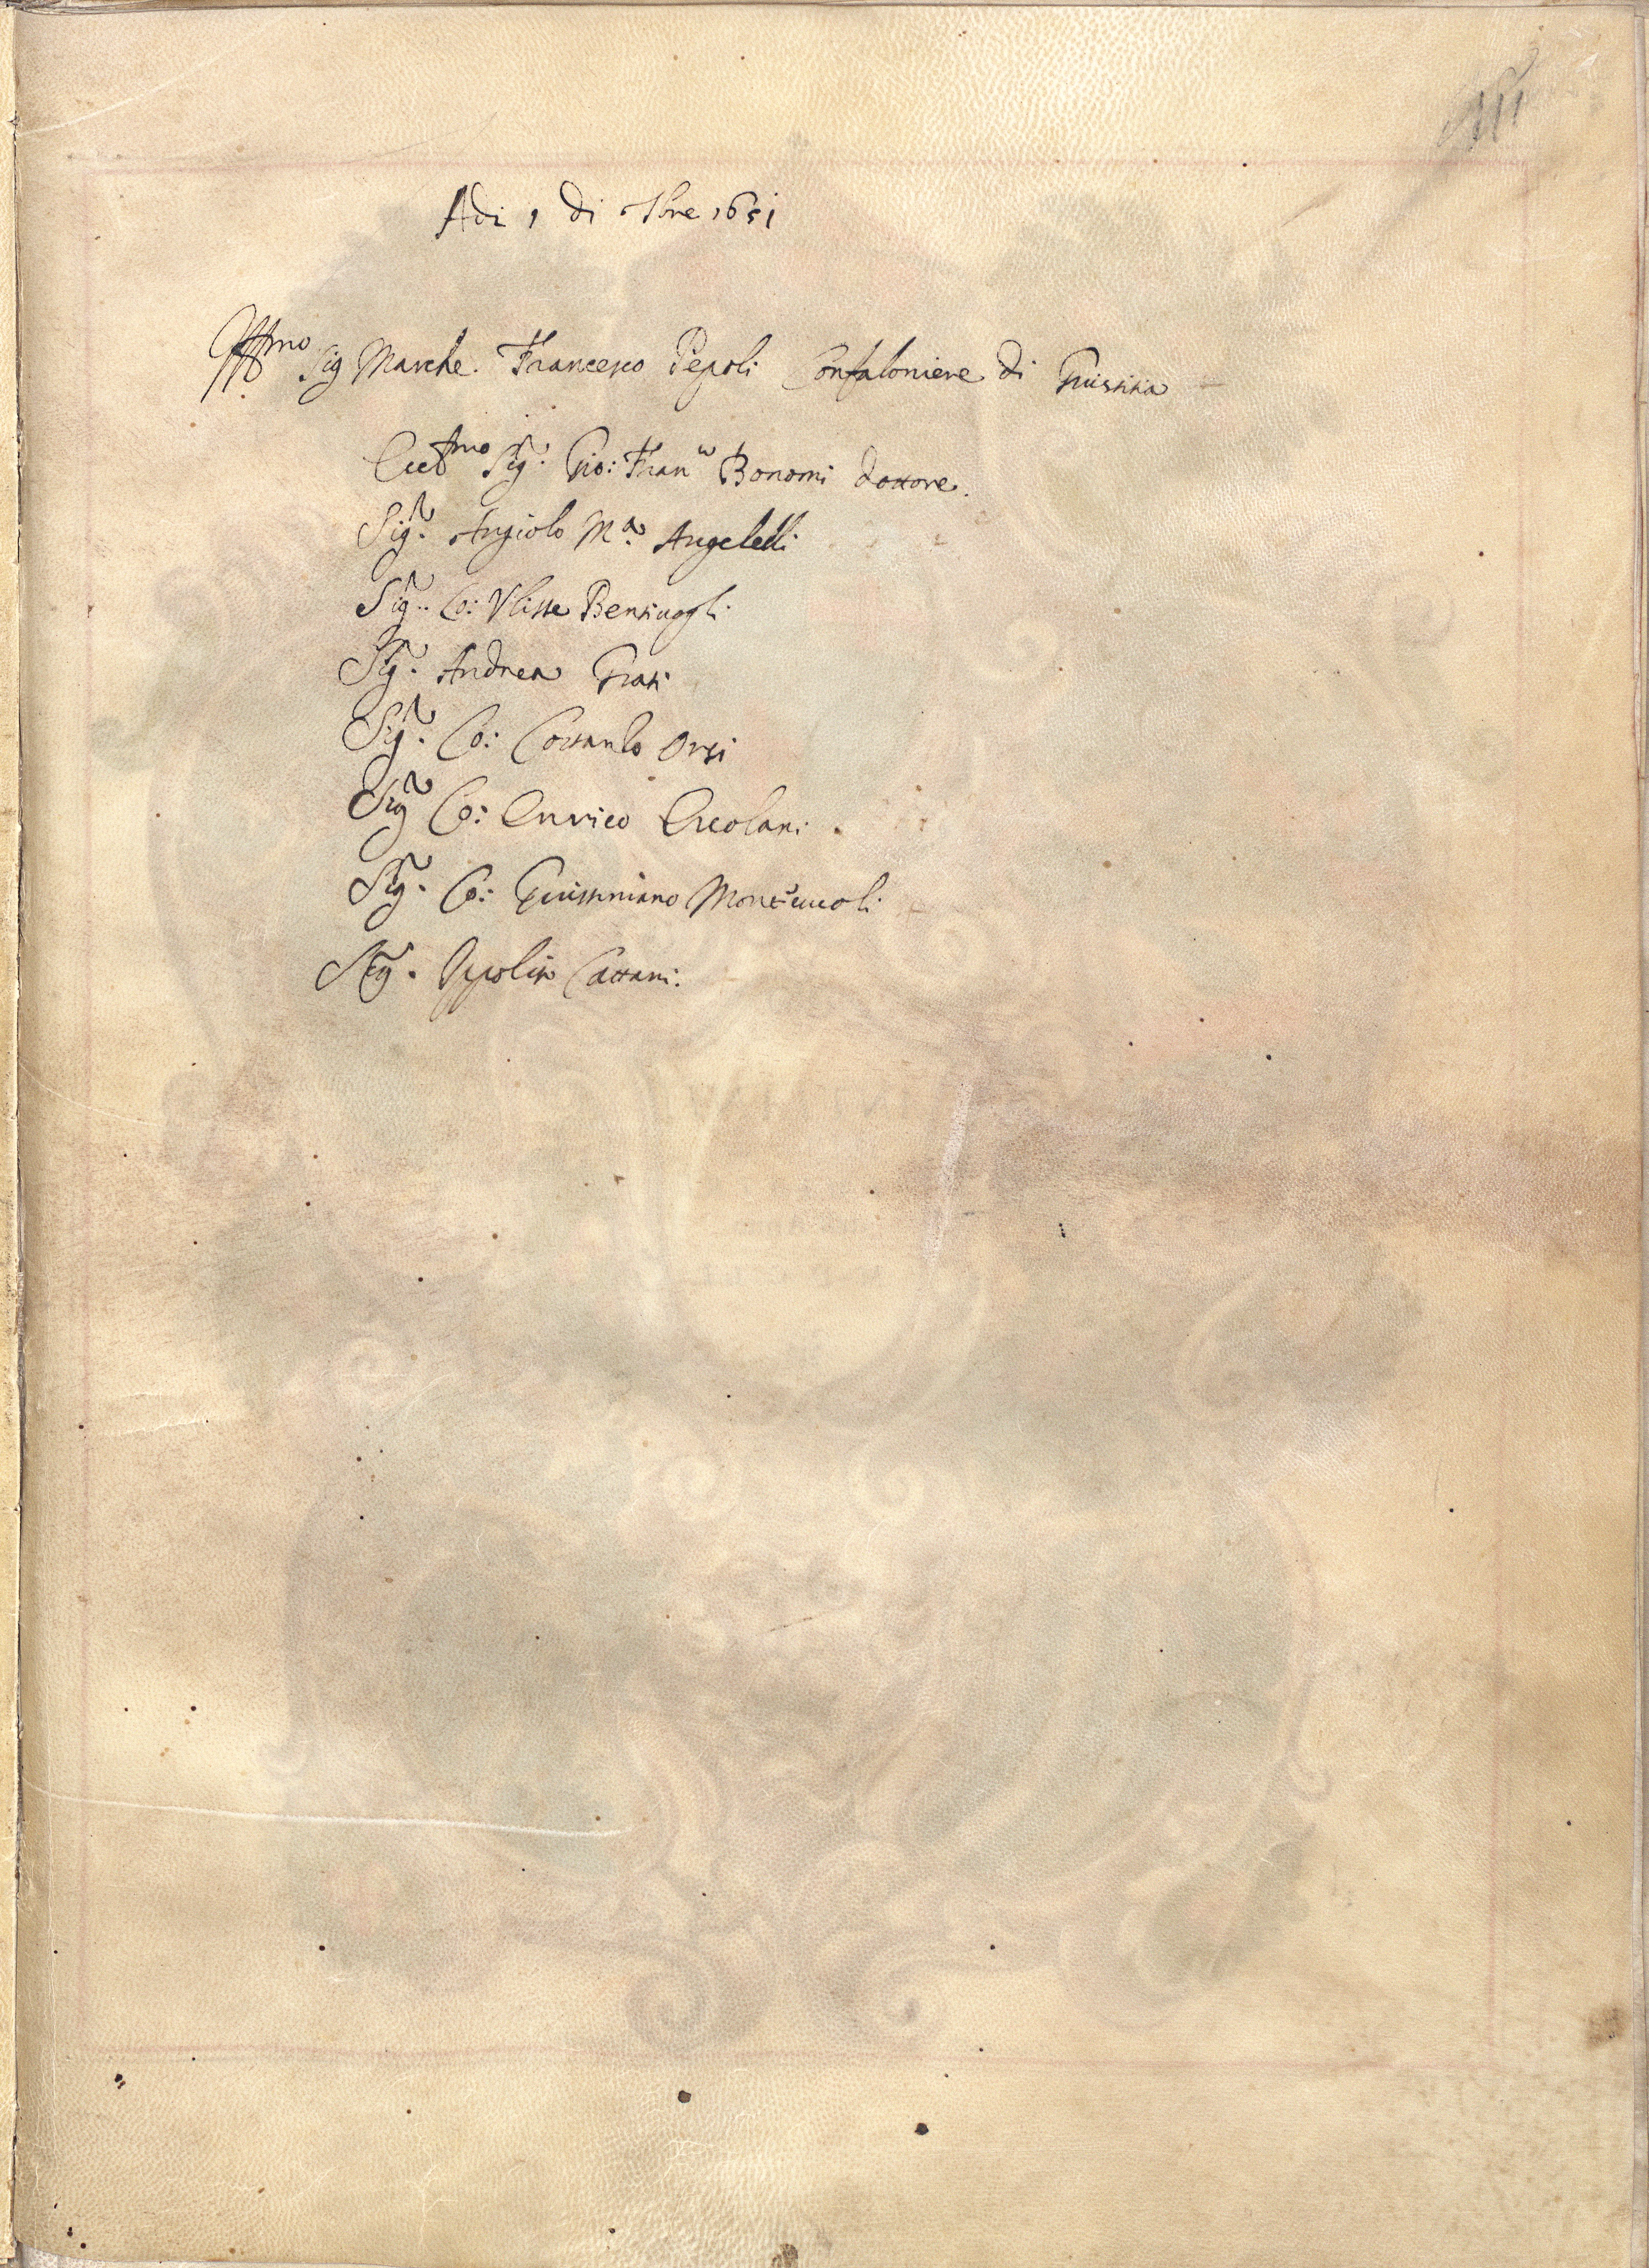 Adi 1 di 9bre 1651
Illmo Sig Marche. Francesco Pepoli Confaloniere di Giustitia
Eccmo Sigr. Gio: Franco Bonomi dottore.
Sigr. Angiolo Ma. Angelelli
Sigr. Co: Vlisse Bentiuogli
Sigr. Andrea Grati
Sigr. Co: Orsi
Sigr Co: Enrico Ercolani.
Sigr. Co: Giustiniano Montecuccoli
Sigr. Ippolito Cattani.